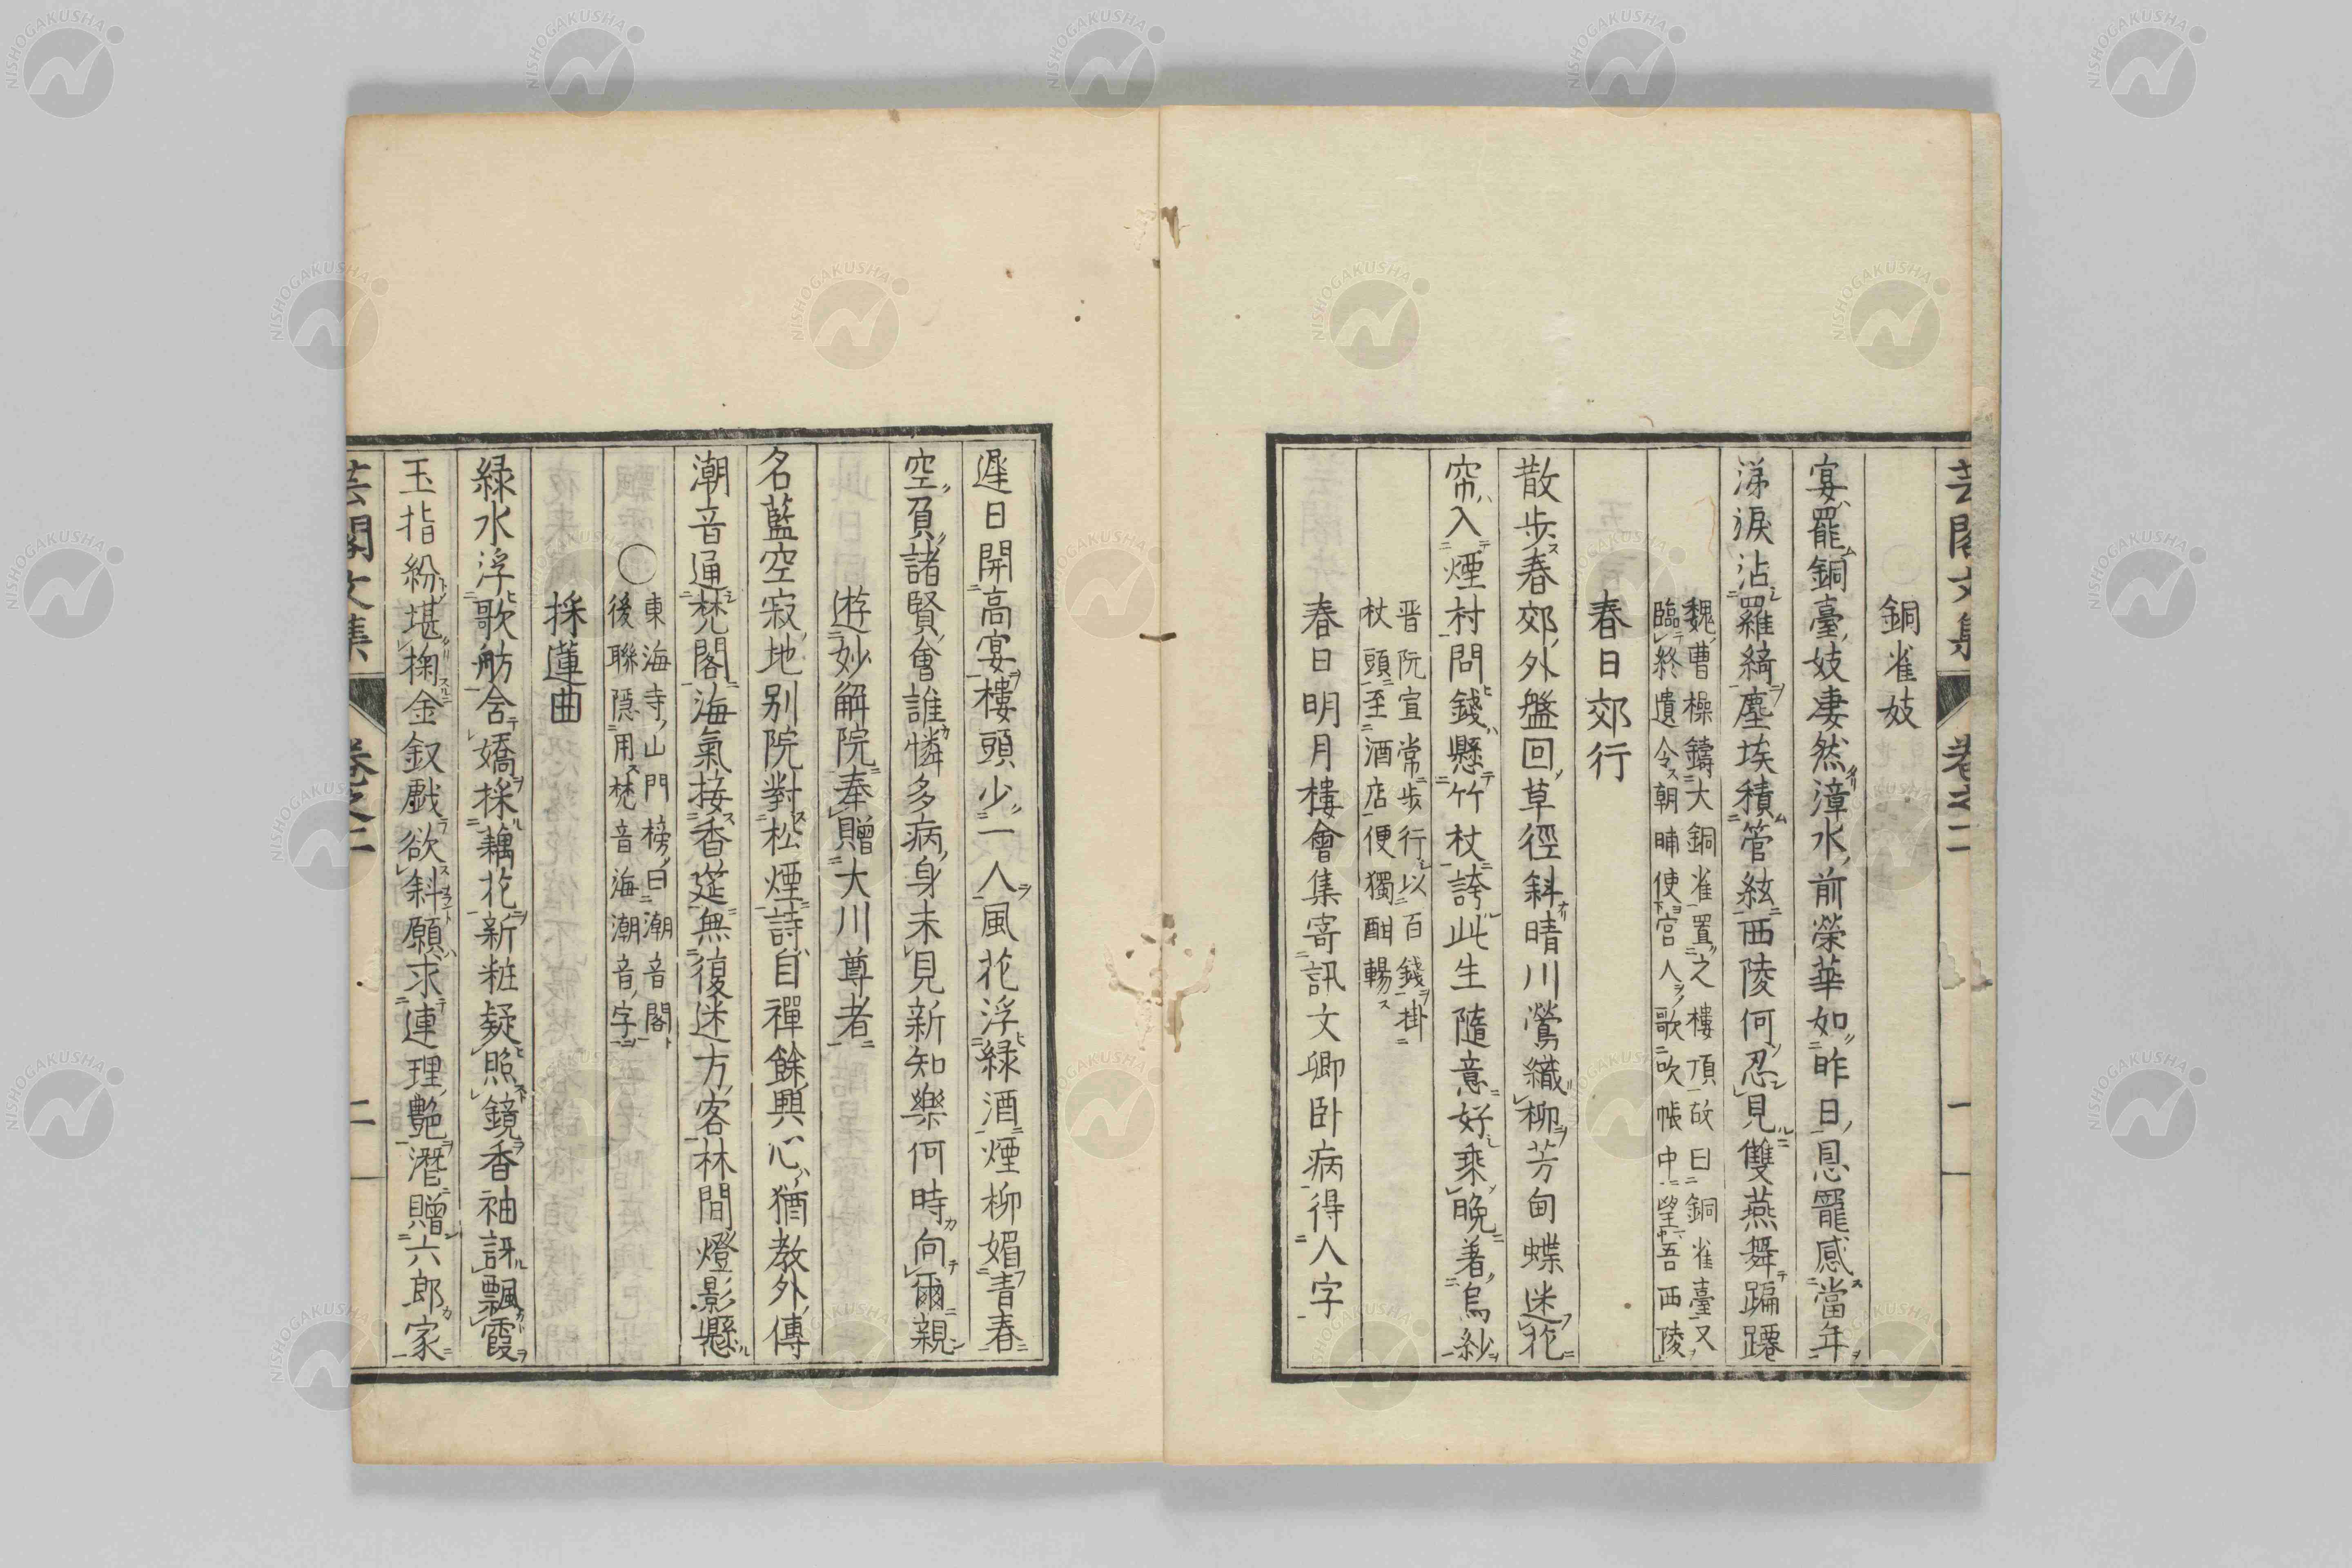 芸閣文集 卷之二 一
銅雀妓
宴罷銅臺妓凄然漳水前榮華如昨日恩寵感當年
涕淚沾羅綺塵埃積管絃西陵何忍見雙燕舞蹁躚
魏曹操鑄大銅雀置之樓頂故曰銅雀臺又
臨終遺令朝晡使宮人歌吹帳中望吾西陵
春日郊行
散步春郊外盤回草徑斜晴川鶯織柳芳甸蝶迷花
帘入煙村問錢懸竹杖誇此生隨意好乘晚著烏紗
晋阮宣常步行以百錢掛
杖頭至酒店便獨酣暢
春日明月樓會集寄訊文卿臥病得人字
遲日開高宴樓頭少一人風花浮綠酒煙柳媚青春
空負諸賢會誰憐多病身未見新知樂何時向爾親
遊妙解院奉贈大川尊者
名藍空寂地別院對松煙詩自禪餘興心猶教外傳
潮音通梵閣海氣接香筵無復迷方客林間燈影懸
○東海寺山門榜曰潮音閣
後聯隱用梵音海潮音字
採蓮曲
綠水浮歌舫含嬌採藕花新粧疑照鏡香袖訝飄霞
玉指紛堪掬金釵戲欲斜願求連理艷潛贈六郎家
芸閣文集 卷之二 二